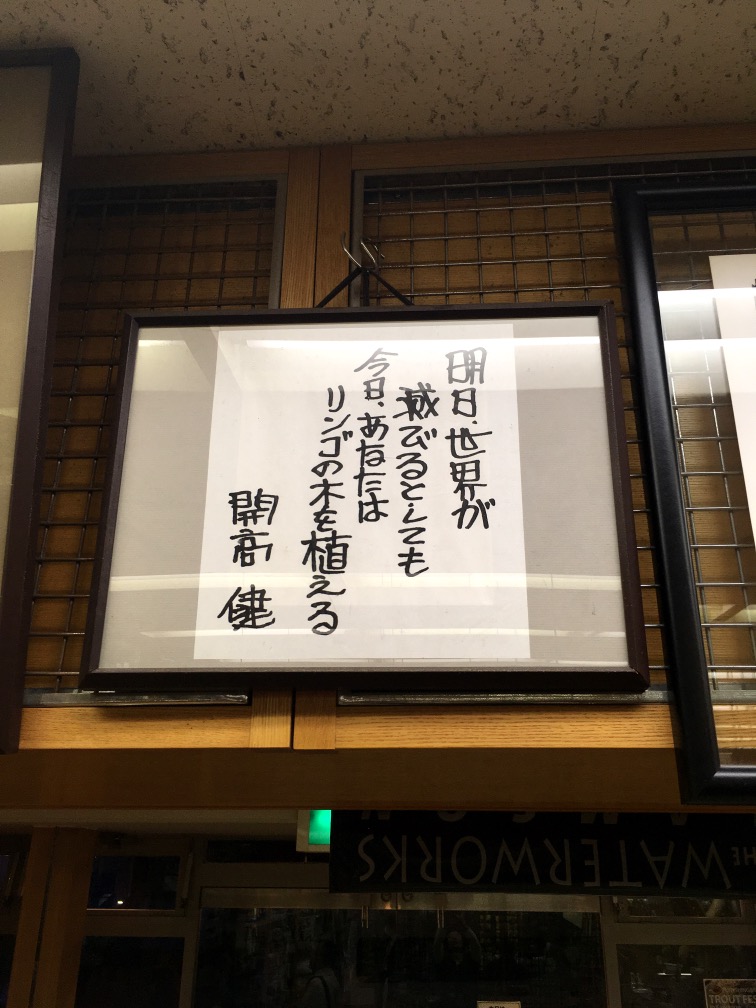 明日、世界が
滅びるとしても
今日、あなたは
リンゴの木を植える
開高 健
THE WATERWORKS
TROUT